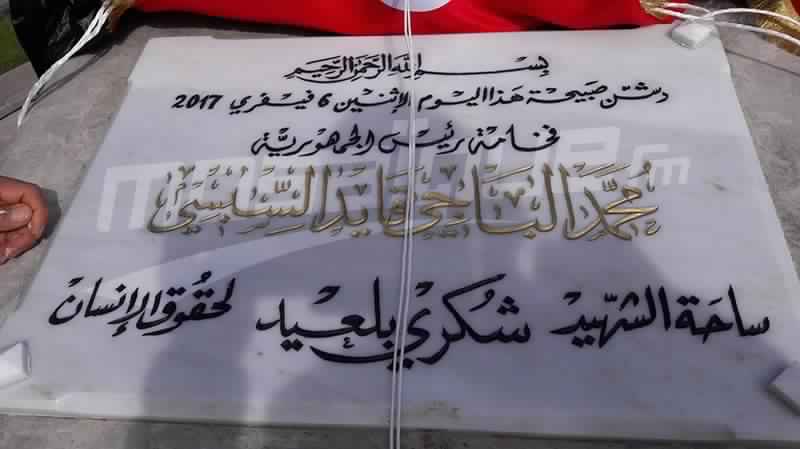 بسم الله الرحمن الرحيم
دشّن صبيحة هذا اليوم الإثنين 6 فيفري 2017
فخامة رئيس الجمهورية
محمّد الباجي قايد السّبسي
ساحة الشهيد شكري بلعيد لحقوق الإنسان
mosaique fm